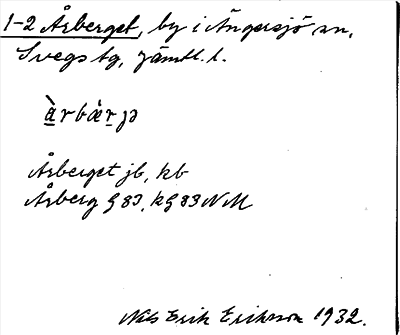 1-2 Årberget, by i Ängersjö sn,
Svegs tg, Jämtl. l.
àrbàrjə
Årberget jb, kb
Årberg G 83, kG 83 NM
Nils Erik Erikson 1932.